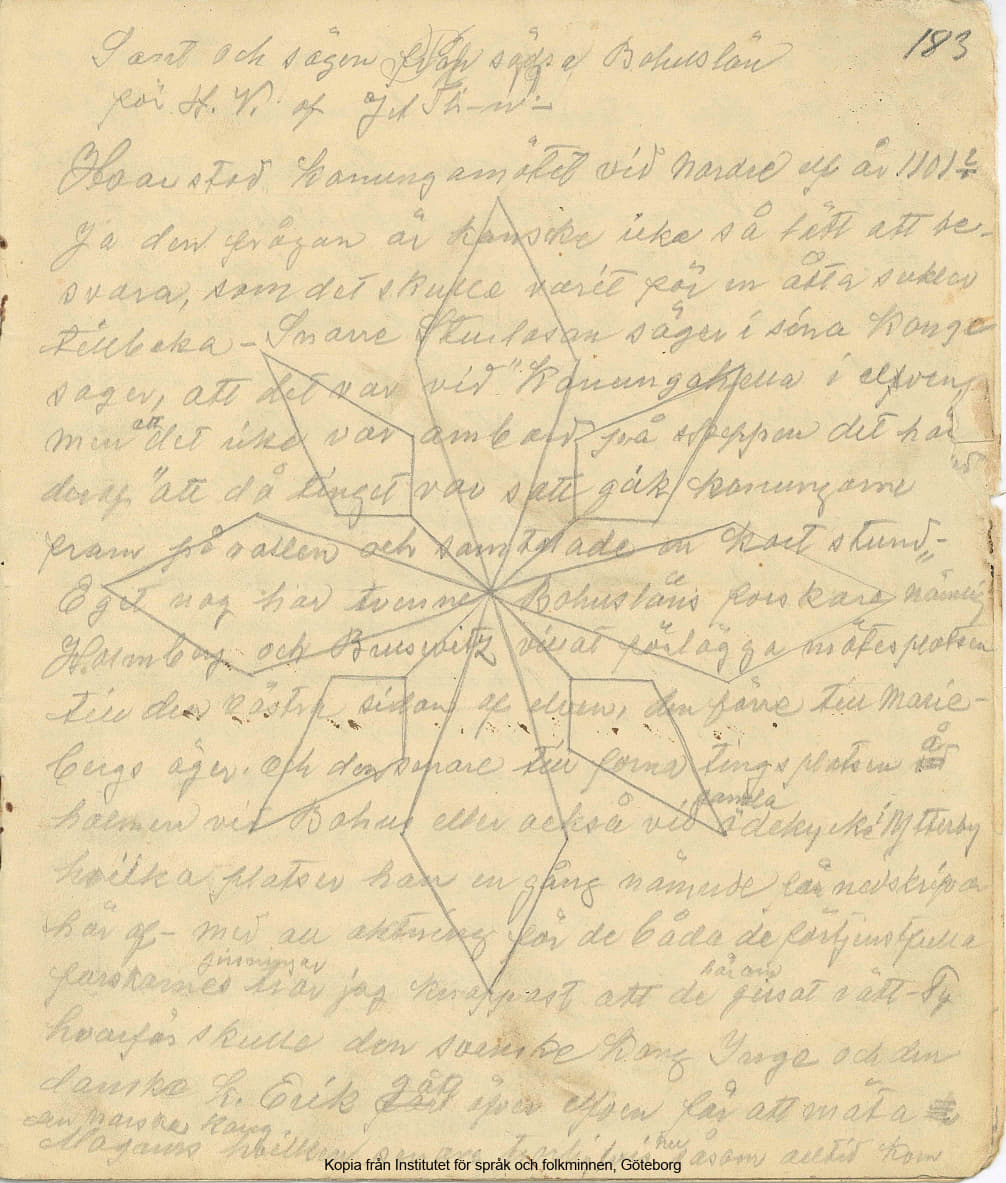 183
Sant och sägen från södra Bohuslän
för H. V. af
Hvar stod Konungamötet vid Nordre elf år 1101?
Ja den frågan är kanske icke så lätt att be-
svara, som det skulle varit för en åtta sekler
tillbaka - Snorre Sturlason säger i sina Konge
sagor, att det var vid "Konungahella i elfven,
men att det icke var ombord på skeppen det hör
deraf "att då tinget var satt gick konungarne
fram på vallen och samtalade en kort stund" -
Eget nog har tvenne Bohusläns forskare nämlig
Holmberg och Brusewitz velat förlägga mötesplatsen
till den västra sidan af elven, den förre till Marie-
bergs äger. och den senare till forna tingsplatsen å
holmen vid Bohus eller också vid gamla ödekyrka i Ytterby
hvilka platser han en gång nämnde för nedskrifvar
här af - med all aktning för de båda de förtjenstfulla
forskarnes gissningar tror jag knappast att de härom gissat rätt - Ty
hvarför skulle den svenske Kong Inge och den
danske K. Erik gått öfver elfven för att möta
den norske kong.
Magnus hvilken senare nu såsom alltid kom
Kopia från Institutet för språk och folkminnen, Göteborg